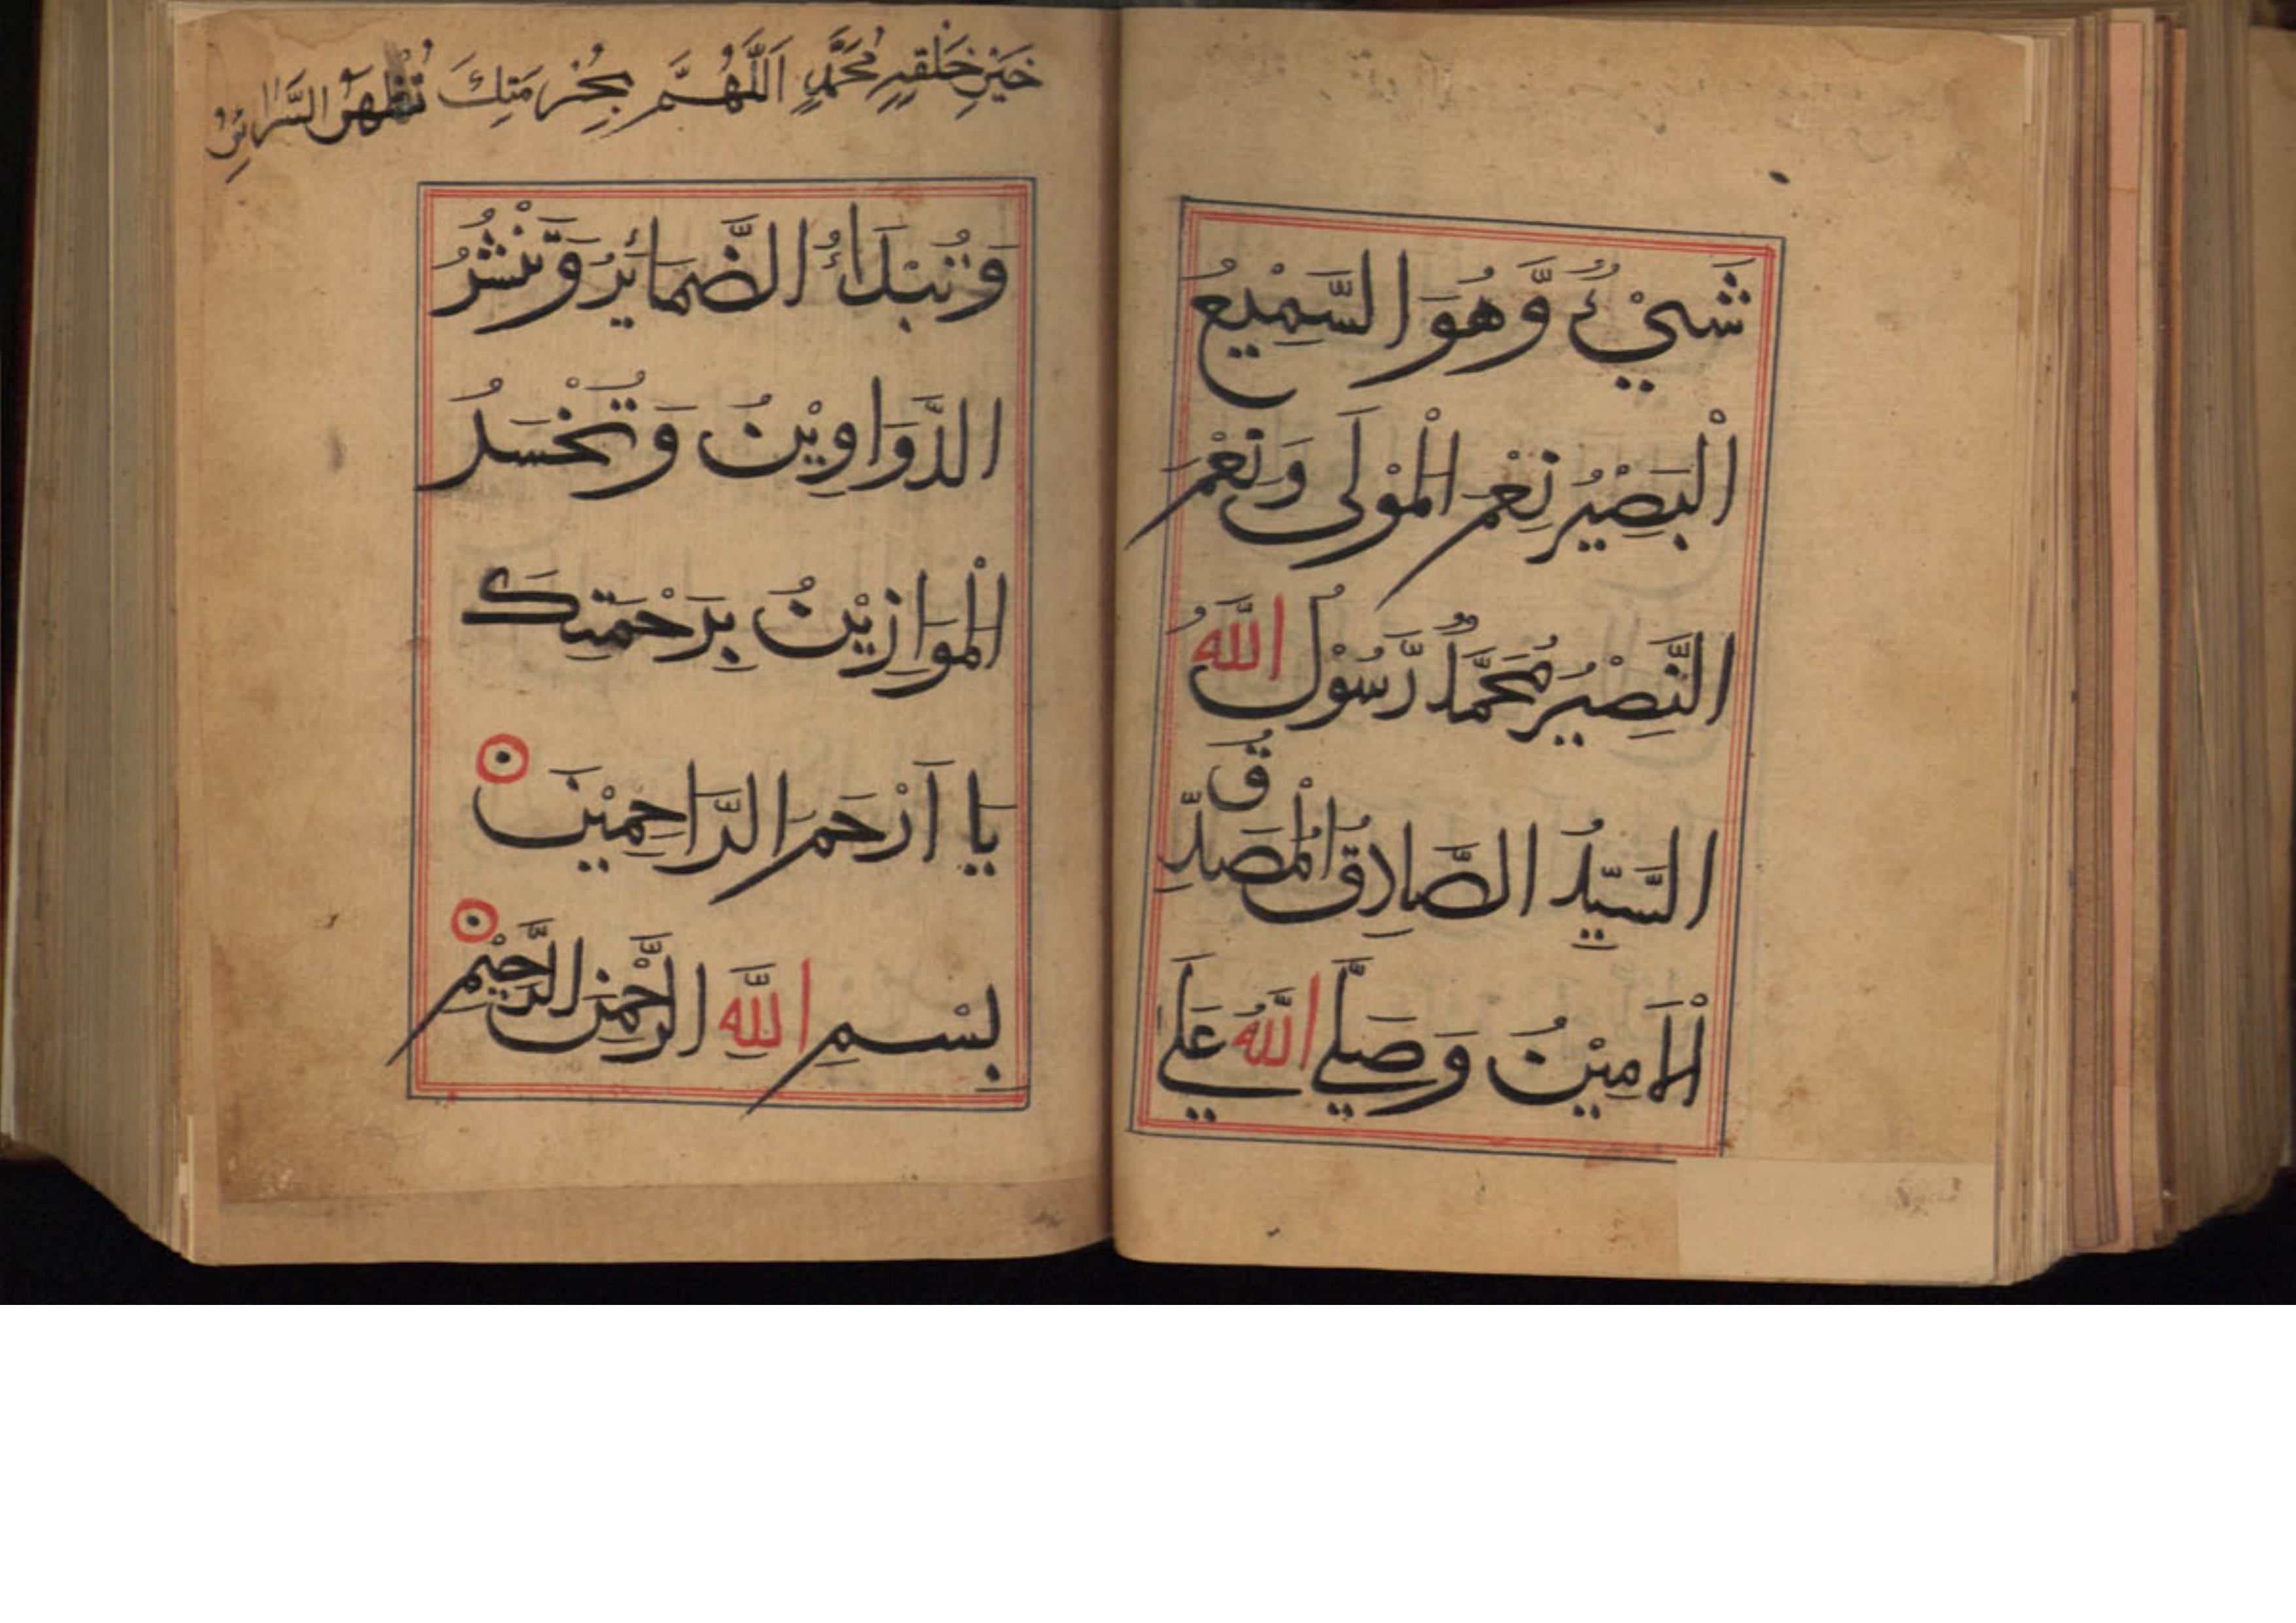 شَيْءٌ وَّهُوَ السَّمِيْعُ
الْبَصِيْرُ نِعْمَ الْمَوْلَى وَنِعْمَ
النَّصِيْرُ مُحَمَّدٌ رَّسُوْلُ اللَّهُ
السَّيِّدُ الصَّادِقُ الْمُصَدِّقُ
الْاَمِيْنُ وَصَلَّي اللَّهُ عَلَي
خَيْرِ خَلْقِهِ مُحَمَّدٍ اَللَّهُمَّ بِحُرْمَتِكَ تُظْهَرُ السَّرَائِرُ
وَتُبْدَاءُ الضَّمَائِرُ وَتُنْشَرُ
الدَّوَاوِيْنُ وَتُحْسَدُ
الْمَوَازِيْنُ بِرَحْمَتِكَ
يَا اَرْحَمَ الرَّاحِمِيْنَ
بِسْمِ اللَّهِ الرَّحْمٰنِ الرَّحِيْمِ